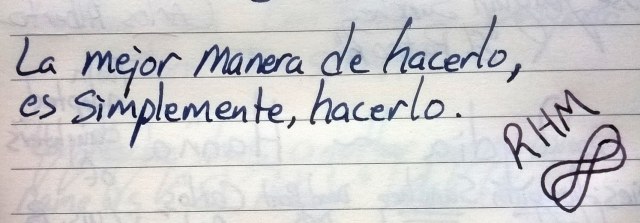 La mejor manera de hacerlo,
es simplemente, hacerlo.
RHM